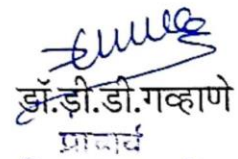 डॉ.डी.डी.गव्हाणे
प्राचार्य